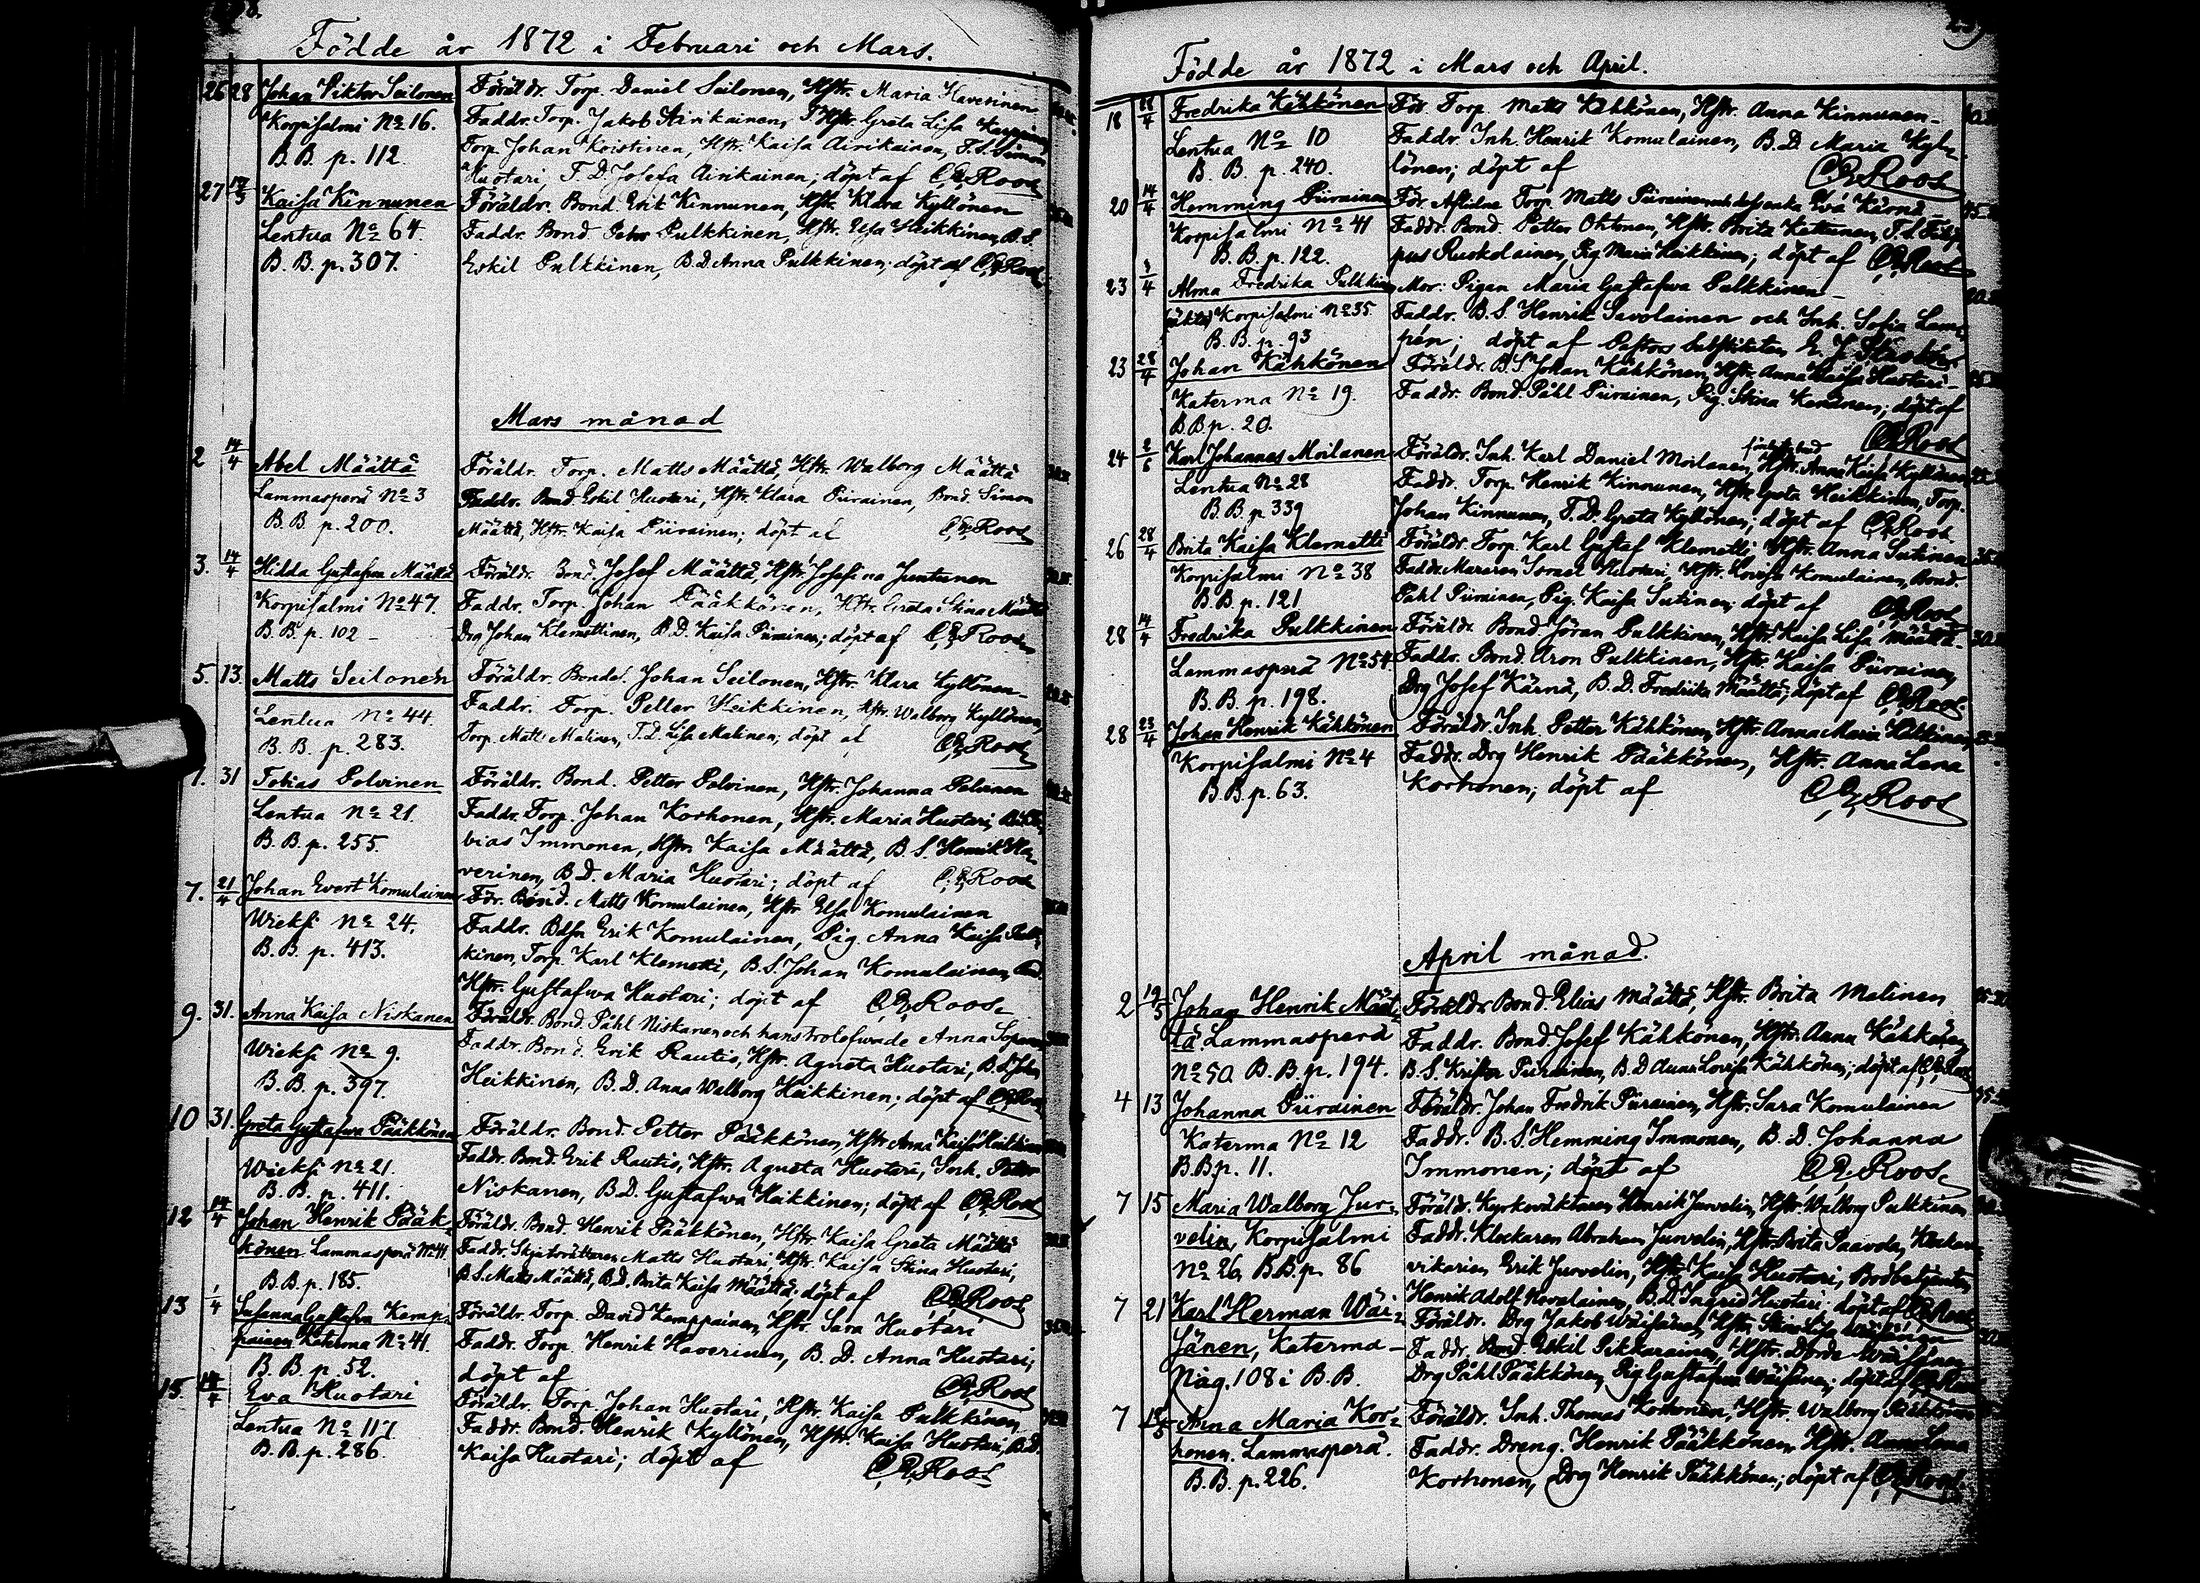 Födde år 1872 i Februari och Mars.
26 28 Johan Viktor Seilonen Föräldr. Torp. Daniel Seilonen, Hstr. Maria Haverinen
Korpisalmi No 16. Faddr. Torp. Jakob Airikainen, Hstr. Greta Lisa
B.B. p. 112. Torp. Johan Koistinen, Hstr. Kaisa Airikainen, T.S. Simon
Huotari, T.D. Josefa Airikainen; döpt af C. E. Roos
27 Kaisa Kinnunen Föräldr. Bond Erik Kinnunen, Hstr. Klara Kyllönen
Lentua No 64. Faddr. Bond. Petter Pulkkinen, Hstr. Elsa Heikkinen, B.S.
B.B. p. 307. Eskil Pulkkinen, B.D. Anna Pulkkinen; döpt af C. E. Roos
Mars månad
2 14/4 Abel Määttä Föräldr. Torp. Matts Määttä, Hstr. Walborg Määttä
Lammasperä No 3 Faddr. Bond. Eskil Huotari, Hstr. Klara Piirainen, Bond Simon
B.B. p. 200. Määttä, Hstr. Kaisa Piirainen; döpt af C. E. Roos
3. 14/4 Hilda Gustafva Määttä Föräldr. Bond. Josef Määttä, Hstr. Josefina Juntunen
Korpisalmi No 47. Faddr. Torp. Johan Pääkkönen, Hstr. Greta Stina Määttä
B.B. p. 102 - Drg Johan Klemettinen, B.D. Kaisa Piirainen; döpt af C. E. Roos
5. 13. Matts Seilonen Föräldr. Bondes. Johan Seilonen, Hstr. Klara Kyllönen -
Lentua No 44. Faddr. Torp. Petter Heikkinen, Hstr. Walborg Kyllönen,
B.B. p. 283. Torp. Matts Malinen, T.D. Lisa Malinen; döpt af C. E. Roos
7. 31 Tobias Polvinen Föräldr. Bond. Petter Polvinen, Hstr. Johanna Polvinen
Lentua No 21. Faddr. Torp. Johan Korhonen, Hstr. Maria Huotari,
B.B. p. 255. bias Immonen, Hstr. Kaisa Määttä, B.S. Henrik Ha-
verinen, B.D. Maria Huotari; döpt af C. E. Roos
7. 21/4 Johan Evert Komulainen För. Bond. Matts Komulainen, Hstr Elsa Komulainen
Wieksi No 24. Faddr. Bdsn Erik Komulainen, Pig. Anna Kaisa Pulk-
B.B. p. 413. kinen, Torp. Karl Klemetti, B.S. Johan Komulainen,
Hstr. Gustafwa Huotari; döpt af C. E. Roos
9. 31. Anna Kaisa Niskanen Föräldr. Bond. Påhl Niskanen och hans trolofwade Anna
Wieksi No 9. Faddr. Bond. Erik Rautio, Hstr. Agneta Huotari, B.S. John
B.B. p. 397. Heikkinen, B.D. Anna Walborg Heikkinen; döpt af C. E. Roos
10 31. Greta Gustafwa Pääkkönen Föräldr. Bond. Petter Pääkkönen, Hstr. Anna Kaisa Heikkinen
Wieksi No 21. Faddr. Bond. Erik Rautio, Hstr. Agneta Huotari, Inh. Petter
B.B. p. 411. Niskanen, B.D. Gustafwa Heikkinen; döpt af C. E. Roos
12 14/4 Johan Henrik Pääk- Föräldr. Bond. Henrik Pääkkönen, Hstr. Kaisa Greta Määttä
könen Lammasperä No 41. Faddr. Matts Huotari, Hstr. Kaisa Stina Huotari,
B.B. p. 185. B.S. Matts Määttä, B.D. Brita Kaisa Määttä; döpt af C. E. Roos
13 1/4 Susanna Gustafva Kemp- Föräldr. Torp. David Kemppainen, Hstr. Sara Huotari
painen Katerma No 41. Faddr. Torp. Henrik Haverinen, B.D. Anna Huotari;
B.B. p. 52. döpt af C. E. Roos
15. 14/4 Eva Huotari Föräldr. Torp. Johan Huotari, Hstr. Kaisa Pulkkinen,
Lentua No 117 Faddr. Bond. Henrik Kyllönen, Hstr. Kaisa Huotari, B.D.
B.B. p. 286. Kaisa Huotari; döpt af C. E. Roos
Födde år 1872 i Mars och April.
18 Fredrika Kähkönen För. Torp. Matts Kähkönen, Hstr. Anna Kinnunen -
Lentua No 10 Faddr. Inh. Henrik Komulainen, B.D. Maria Kyl-
B.B. p. 240. lönen; döpt af C. E. Roos
20 14/4 Hemming Piirainen För. Aflidne Torp. Matts Piirainen och dess enka Ewa Kärnä
Korpisalmi No 41 Faddr. Bond. Petter Ohtonen, Hstr. Brita Kettunen, T.S. Filip-
B.B. p. 122. pus Ruokolainen, Pig Maria Heikkinen; döpt af C. E. Roos
23 Alma Fredrika Pulkkinen Mor: Pigan Maria Gustafwa Pulkkinen -
Korpisalmi No 35 Faddr. B.S. Henrik Savolainen och Inh. Sofia Lam-
B.B. p. 93 pén; döpt af Pastors Substituten
23 28/4 Johan Kähkönen Föräldr. B.S. Johan Kähkönen, Hstr. Anna Kaisa Huotari -
Katerma No 19. Faddr. Bond. Påhl Piirainen, Pig. Stina Keränen; döpt af
B.B. p. 20. C. E. Roos
24 2/6 Karl Johannes Moilanen Föräldr. Inh. Karl Daniel Moilanen, Hstr. Anna Kaisa Kyllönen
Lentua No 28 Faddr. Torp. Henrik Kinnunen, Hstr. Greta Heikkinen, Torp.
B.B. p. 339 Johan Kinnunen, T.D. Greta Kyllönen; döpt af C. E. Roos
26 28/4 Brita Kaisa Klemetti Föräldr. Torp. Karl Gustaf Klemetti, Hstr. Anna Sutinen
Korpisalmi No 38 Faddr. Israel Huotari, Hstr. Lovisa Komulainen, Bond.
B.B. p. 121 Påhl Piirainen, Pig. Kaisa Sutinen; döpt af C. E. Roos
28 14/4 Fredrika Pulkkinen Föräldr. Bond. Göran Pulkkinen, Hstr Kaisa Lisa Määttä -
Lammasperä No 54 Faddr. Bond. Aron Pulkkinen, Hstr. Kaisa Piirainen,
B.B. p. 198. Drg Josef Kärnä, B.D. Fredrika Määttä; döpt af C. E. Roos
28 Johan Henrik Kähkönen Föräldr. Inh. Petter Kähkönen, Hstr. Anna Maria
Korpisalmi No 4 Faddr. Drg Henrik Pääkkönen, Hstr. Anna Lena
B.B. p. 63. Korhonen; döpt af C. E. Roos
April månad.
2 19/5 Johan Henrik Määt- Föräldr. Bond. Elias Määttä, Hstr. Brita Malinen
tä. Lammasperä Faddr. Bond. Josef Kähkönen, Hstr. Anna Kähkönen,
No 50. B.B. p. 194. B.S. Krister Piirainen, B.D. Anna Lovisa Kähkönen; döpt af C. E. Roos
4 13 Johanna Piirainen Föräldr. Johan Fredrik Piirainen, Hstr. Sara Komulainen
Katerma No 12 Faddr. B.S. Hemming Immonen, B.D. Johanna
B.B. p. 11. Immonen; döpt af C. E. Roos
7 15 Maria Walborg Jur- Föräldr. Kyrkowäktaren Henrik Jurvelin, Hstr. Walborg Pulkkinen
velin, Korpisalmi Faddr. Klockaren Abraham Jurvelin, Hstr. Brita Paavola, Klockare-
No 26. B.B. p. 86 vikarien Erik Jurvelin, Hstr. Kaisa Huotari,
Henrik Adolf Hovalainen, B.D. Ingrid Huotari; döpt af C. E. Roos
7 21 Karl Herman Wäi- Föräldr. Drg Jakob Wäisänen, Hstr. Stina Lisa Wäisänen
sänen, Katerma - Faddr. Bond Eskil Pikkarainen, Hstr. Dorde Wäisänen
Pag. 108 i B.B. Drg Påhl Pääkkönen, Pig Gustafwa Wäisänen; döpt af C. E. Roos
7 Anna Maria Kor- Föräldr. Inh. Thomas Korhonen, Hstr. Walborg Pääkkönen
honen. Lammasperä. Faddr. Dreng. Henrik Pääkkönen, Hstr. Anna Lena
B.B. p. 226. Korhonen, Drg Henrik Pääkkönen; döpt af C. E. Roos.